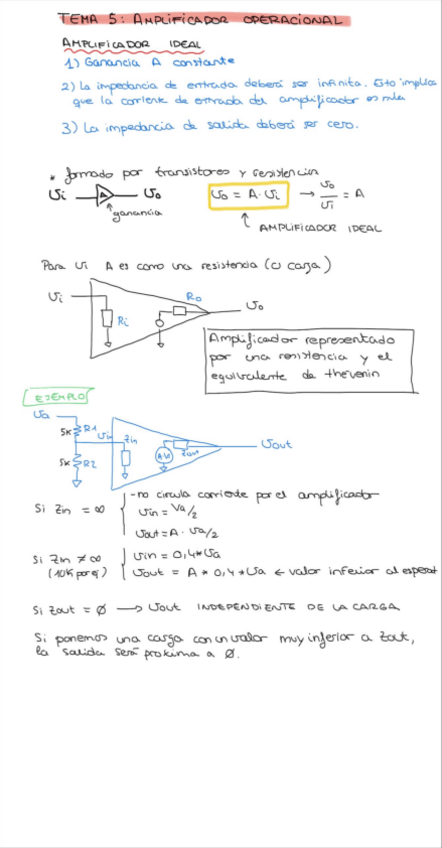 TEMA 5: AMPLIFICADOR OPERACIONAL
AMPLIFICADOR IDEAL
1) Ganancia A constante
2) La impedancia de entrada deberá ser infinita. Esto implica
que la corriente de entrada del amplificador es nula
3) La impedancia de salida deberá ser cero.
* formado por transistores y resistencias
Ui A Uo Uo = A·Ui → Uo/Ui = A
ganancia
AMPLIFICADOR IDEAL
Para Ui A es como una resistencia (o carga)
Ui Ri Ro Uo
Amplificador representado
por una resistencia y el
equivalente de thevenin
EJEMPLO
Ua
5K R1 Uin Zin
5K R2 Zout Uout
Si Zin = ∞
-no circula corriente por el amplificador
Uin = Va/2
Uout = A · Ua/2
Si Zin ≠ ∞
(10K por ej)
Uin = 0,4*Ua
Uout = A * 0,4 * Ua ← valor inferior al esperat
Si Zout = Ø → Uout INDEPENDIENTE DE LA CARGA
Si ponemos una carga con un valor muy inferior a Zout,
la salida será proxima a Ø.